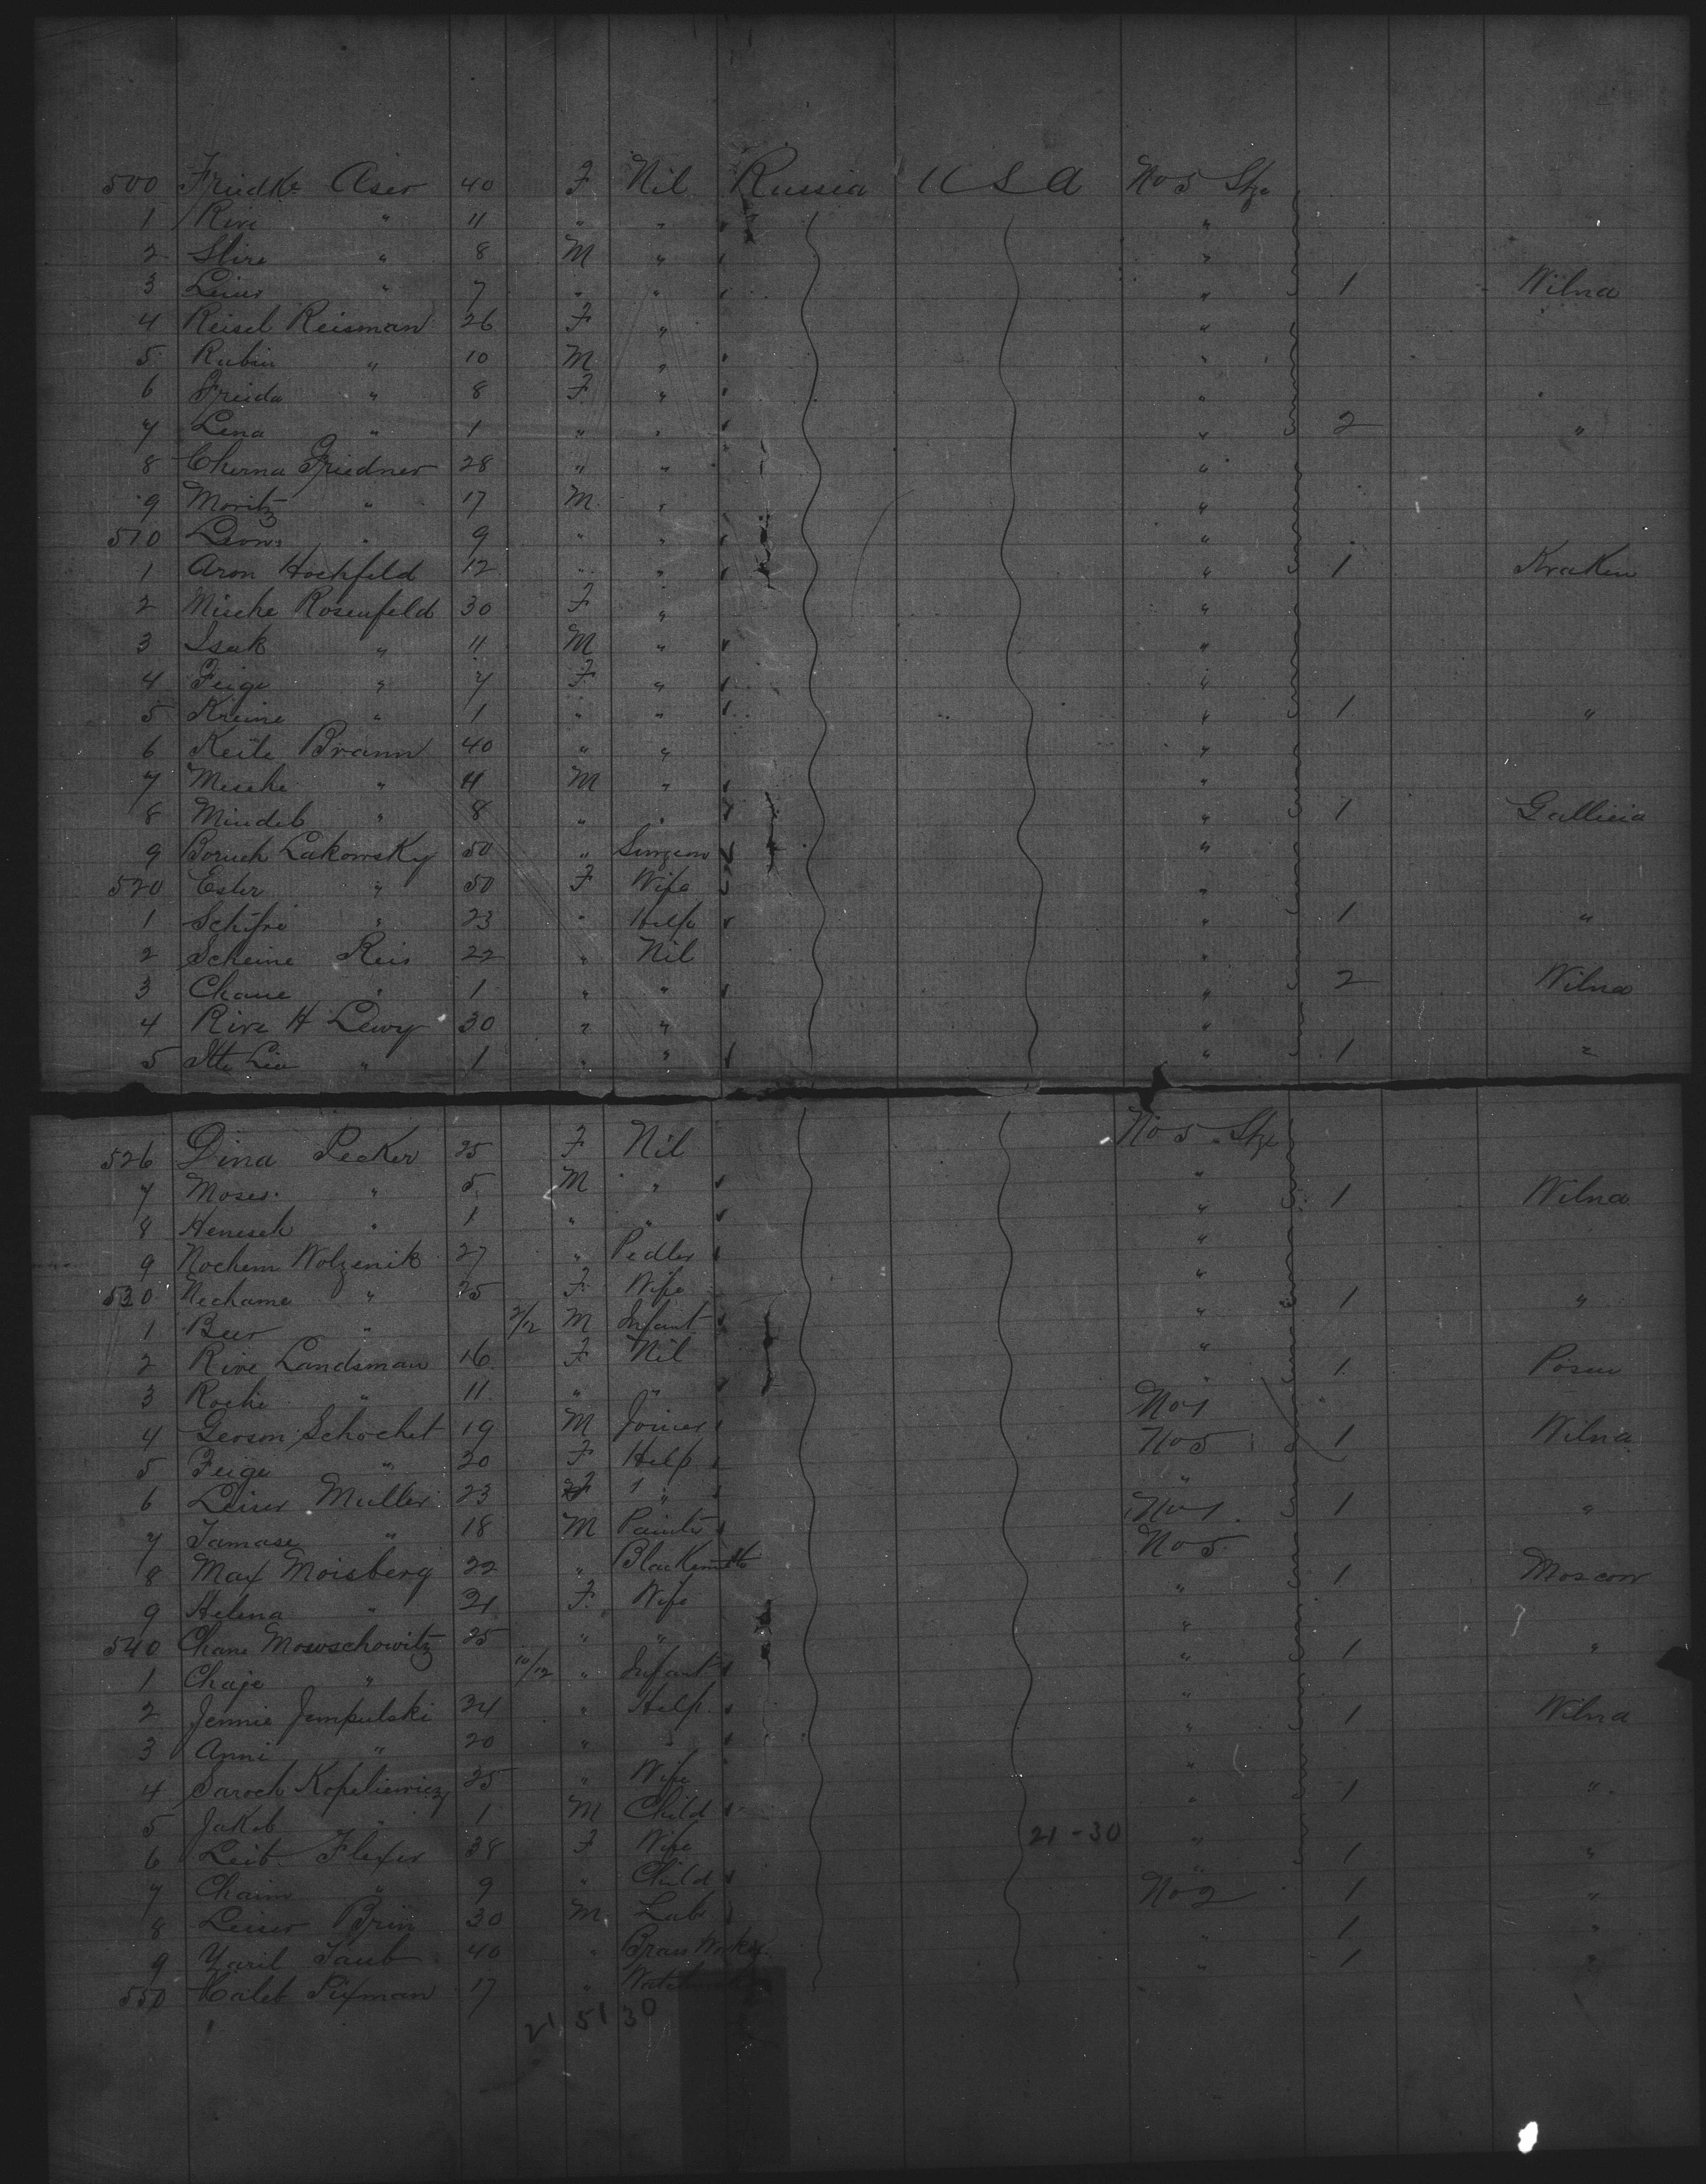 500 Friedke Aser 40 F Nil Russia U S A No 5 Stge
1 Rive " 11 " " "
2 Slire " 8 M " "
3 Leiser " 7 " " " 1 Wilna
4 Reisel Reisman 26 F " "
5 Rubin " 10 M " "
6 Freida " 8 F " "
7 Lena " 1 " " " 2 "
8 Cherna Friedner 28 " " "
9 Moritz " 17 M " "
510 Leon " 9 " " "
1 Aron Hochfeld 12 " " " 1 Kraken
2 Mische Rosenfeld 30 F " "
3 Isak " 11 M " "
4 Feige " 7 F " "
5 Kreine " 1 " " " 1 "
6 Keile Brann 40 " " "
7 Mische " 11 M " "
8 Mindel " 8 " " " 1 Gallicia
9 Boruch Lakowsky 50 " Surgeon "
520 Ester " 50 F Wife "
1 Schifre " 23 " Help " 1 "
2 Scheine Reis 22 " Nil "
3 Chane " 1 " " " 2 Wilna
4 Rive H Lewy 30 " " "
5 Itte Lie " 1 " " " 1 "
526 Dina Pecker 25 F Nil No 5 Stge
7 Moses " 5 M " " 1 Wilna
8 Henesch " 1 " " "
9 Nochem Wolzenik 27 " Pedler "
530 Nechame " 25 F Wife " 1 "
1 Beer " 2/12 M Infant "
2 Rive Landsman 16 F Nil " 1 Posen
3 Roche " 11 " " No 1
4 Gerson Schochet 19 M Joiner No 5 1 Wilna
5 Feige " 20 F Help "
6 Leiser Muller 23 F " No 1 1 "
7 Tamase " 18 M Painter No 5
8 Max Moisberg 22 " Blacksmith " 1 Moscow
9 Helena " 21 F Wife "
540 Chane Mowschowitz 25 " " " 1 "
1 Chaje " 10/12 " Infant "
2 Jennie Jempulski 24 " Help " 1 Wilna
3 Anni " 20 " " "
4 Saroch Kopeliewicz 25 " Wife " 1 "
5 Jakob " 1 M Child
21-30
6 Leib Flexer 38 F Wife " 1 "
7 Chaim " 9 " Child No 2 1 "
8 Leiser Brin 30 M Lab " 1 "
9 Yaril Taub 40 " Brass Worker " 1 "
550 Calet Sixman 17 "
21 51 30